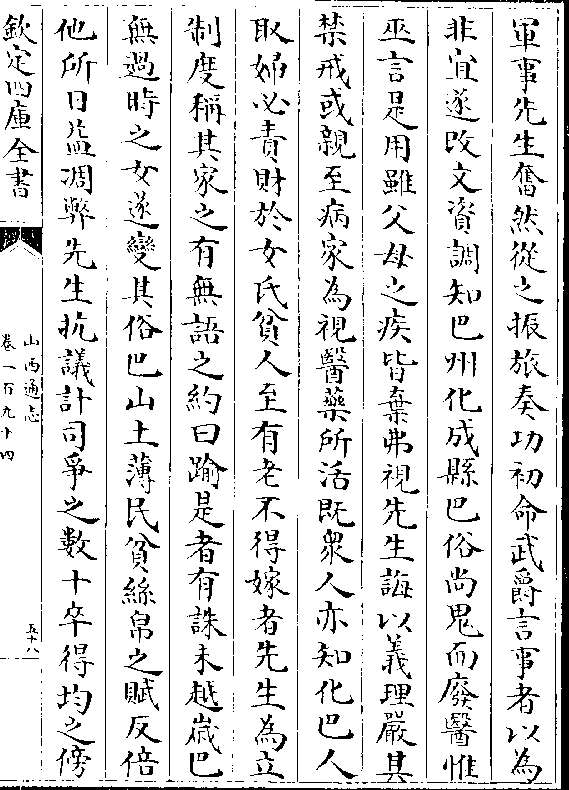 軍事先生奮然從之振旅奏功初命武爵言事者以為
非宜遂改文資調知巴州化成縣巴俗尚鬼而廢醫惟
巫言是用雖父母之疾皆棄弗視先生誨以義理嚴其
禁戒或親至病家為視醫藥所活既衆人亦知化巴人
取婦必責財於女氏貧人至有老不得嫁者先生為立
制度稱其家之有無語之約曰踰是者有誅未越嵗巴
無過時之女遂變其俗巴山土薄民貧絲帛之賦反倍
他所日益凋弊先生抗議計司爭之數十卒得均之傍
欽定四庫全書
山西通志
卷一百九十四
五十八